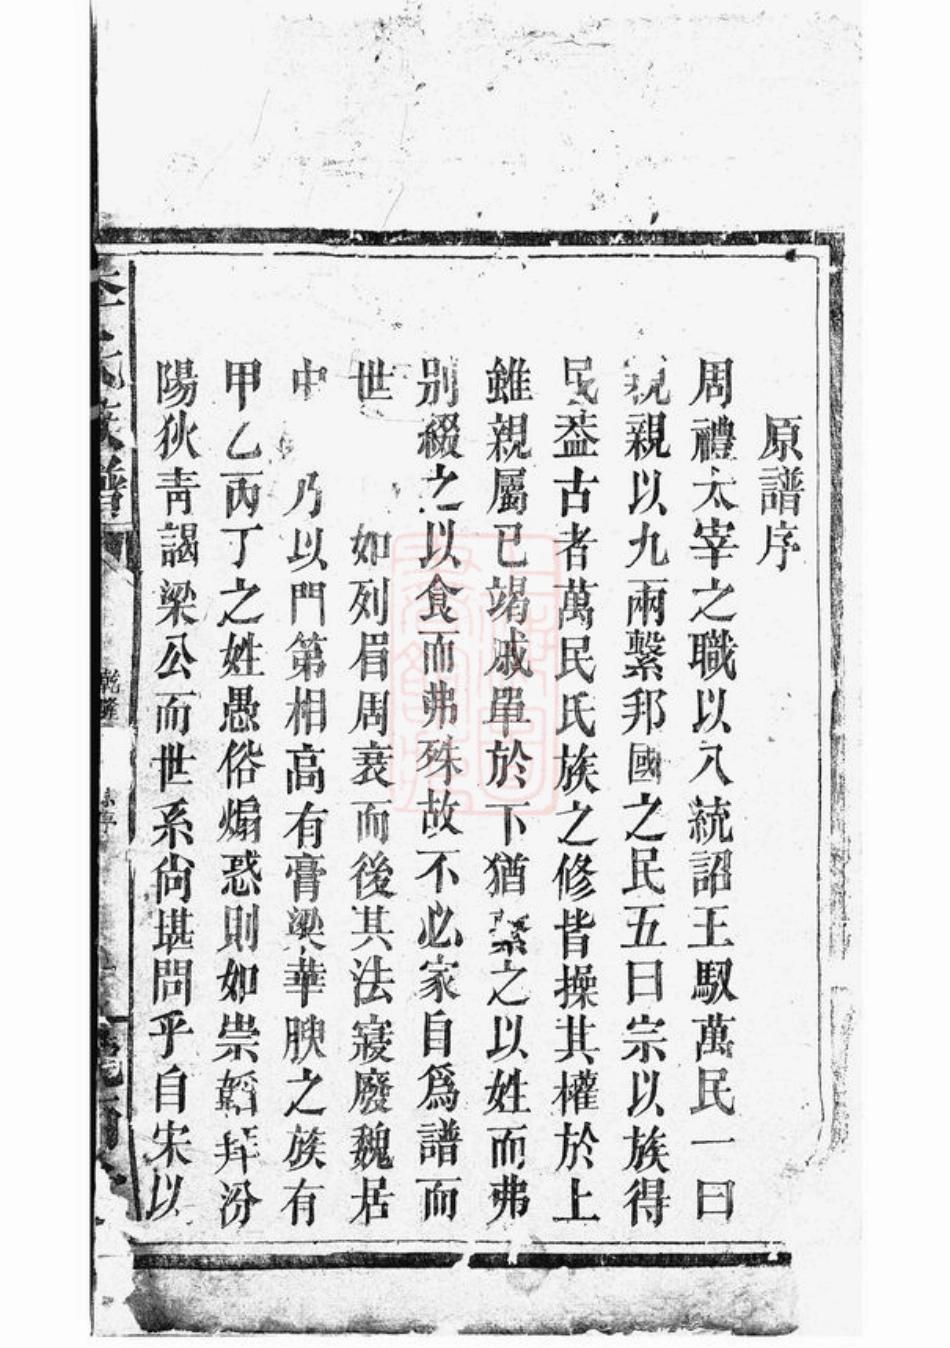 原譜序
周禮太宰之職以八統詔王馭萬民一曰
親親以九兩繫邦國之民五曰宗以族得
民葢古者萬民氏族之修皆操其權於上
雖親屬已竭戚單於下猶繫之以姓而弗
別綴之以食而弗殊故不必家自爲譜而
世 如列眉周衰而後其法寖廢魏居
中 乃以門第相高有膏粱華腴之族有
甲乙丙丁之姓愚俗煽惑則如崇韜拜汾
陽狄青謁梁公而世系尙堪問乎自宋以
氏族譜
乾隆